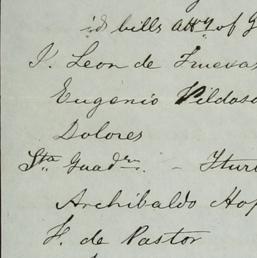 bills atty of
J. Leon de
Eugenio Vildoso
Dolores
Sta Guadrn. - Ituri
Archibaldo Hop
F. de Pastor